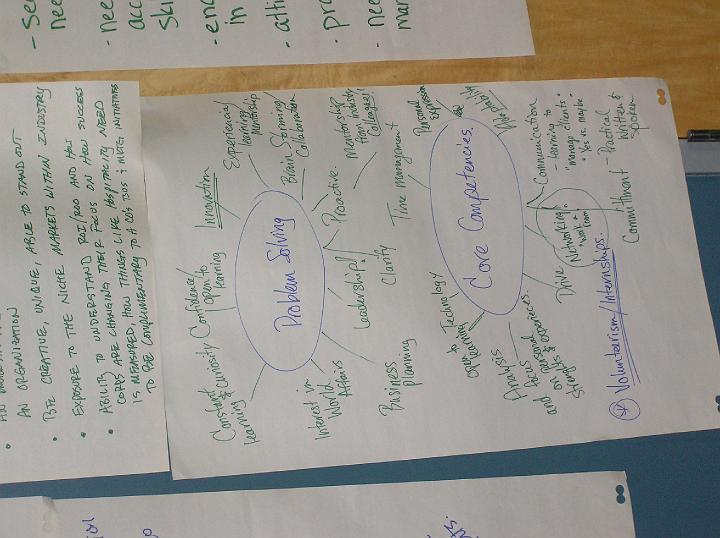 - need
acc
ski
- en
in
- atti
- pr
- nee
man
AN ORGANIZATION
• BE CREATIVE, UNIQUE, ABLE TO STAND OUT
• EXPOSURE TO THE NICHE MARKETS WITHIN INDUSTRY
• ABILITY TO UNDERSTAND ROI/ROO AND HOW
CORPS ARE CHANGING THEIR FOCUS ON HOW SUCCESS
IS MEASURED, HOW THINGS LIKE HOSPITALITY NEED
TO BE COMPLIMENTARY TO A COS BUS & MKTG INITIATIVES
Problem Solving
Constant
learning
& Curiosity
Confidence/
open to
learning
Innovation
Experiencial
learning/
Mentorship
Brain Storming/
Collaboration
Interest in
World
Affairs
Leadership!
Proactive
Mentorship
from industry
Colleagues!
Business
planning
Clarity
Time management
Core Competencies
Personal
Expression
Adaptability
open to
learning
Technology
Analysis
focus
and on personal
strengths needs &
experiences.
Drive
Networking!
"work a
room"
Communication
- learning to
"manage clients"
"Yes vs. maybe"
Commitment
Practical
written &
spoken
* Volunteerism/Internships.